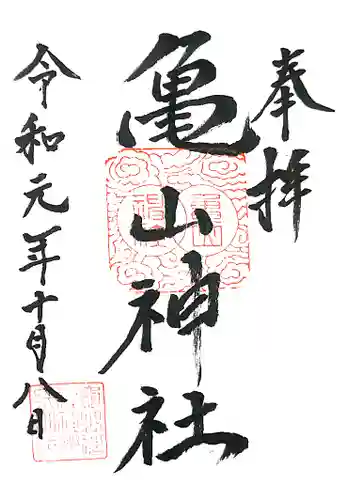 奉拝
亀山神社
令和元年十月八日